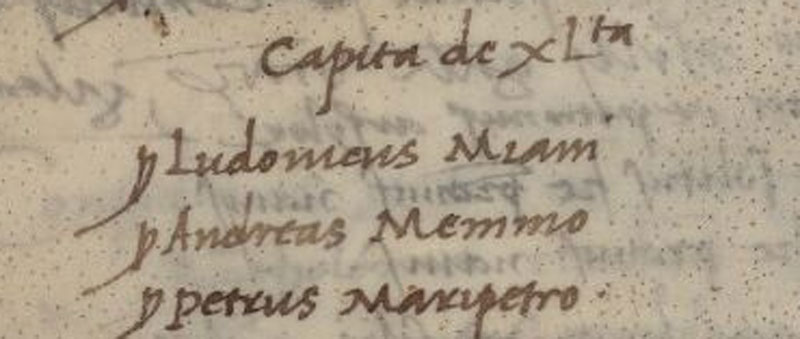 Capita de xLta
y Ludouicus Miani
y Andreas Memmo
y petrus Maripetro